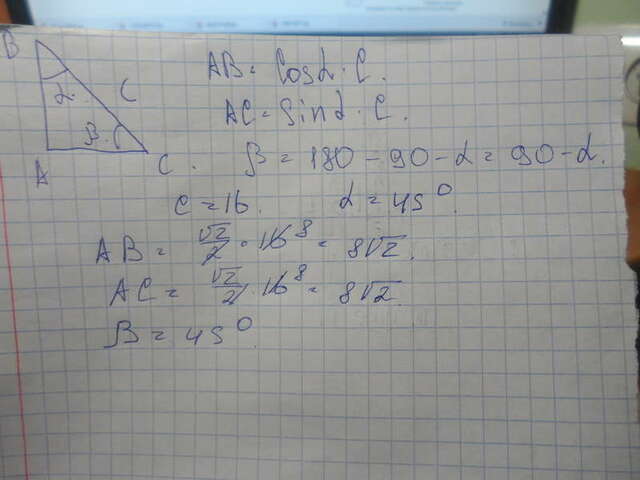 B
AB = cosα · C.
α C
AC = sinα · C.
β
A C. β = 180 - 90 - α = 90 - α.
C = 16. α = 45°.
AB = √2/2 · 16 8 = 8√2.
AC = √2/2 · 16 8 = 8√2.
β = 45°.